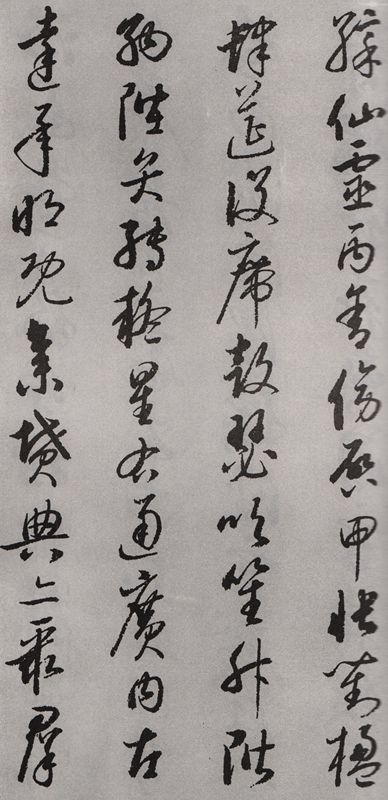 綵仙靈丙舍傍啓甲帳對楹
肆筵設席鼓瑟吹笙升階
納陛弁轉疑星右通廣內左
達承明既集墳典亦聚羣